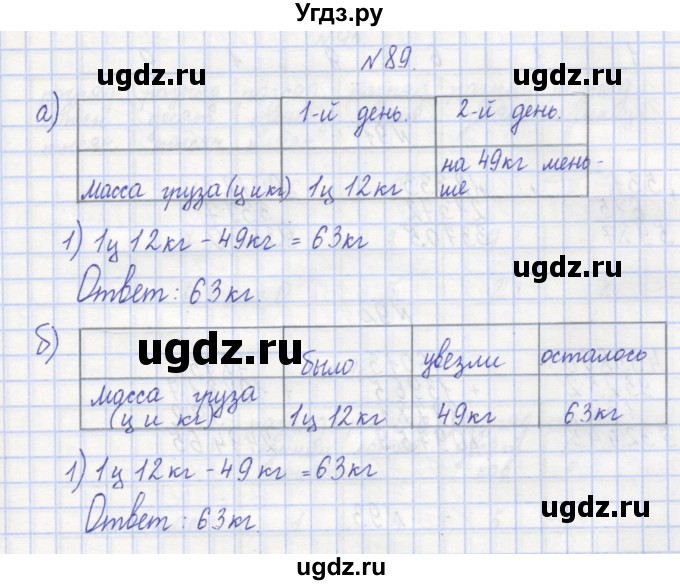 Угдз.ру
№89.
ugdz.ru ugdz.ru
а) 1-й день. 2-й день.
масса груза (ц и кг) 1ц 12кг на 49кг мень-
ше
1) 1ц 12кг - 49кг = 63кг
ugdz.ru ugdz.ru
Ответ: 63кг.
б) было увезли осталось
ugdz.ru ugdz.ru
масса груза
(ц и кг) 1ц 12кг 49кг 63кг
1) 1ц 12кг - 49кг = 63кг
ugdz.ru ugdz.ru
Ответ: 63кг.
ugdz.ru